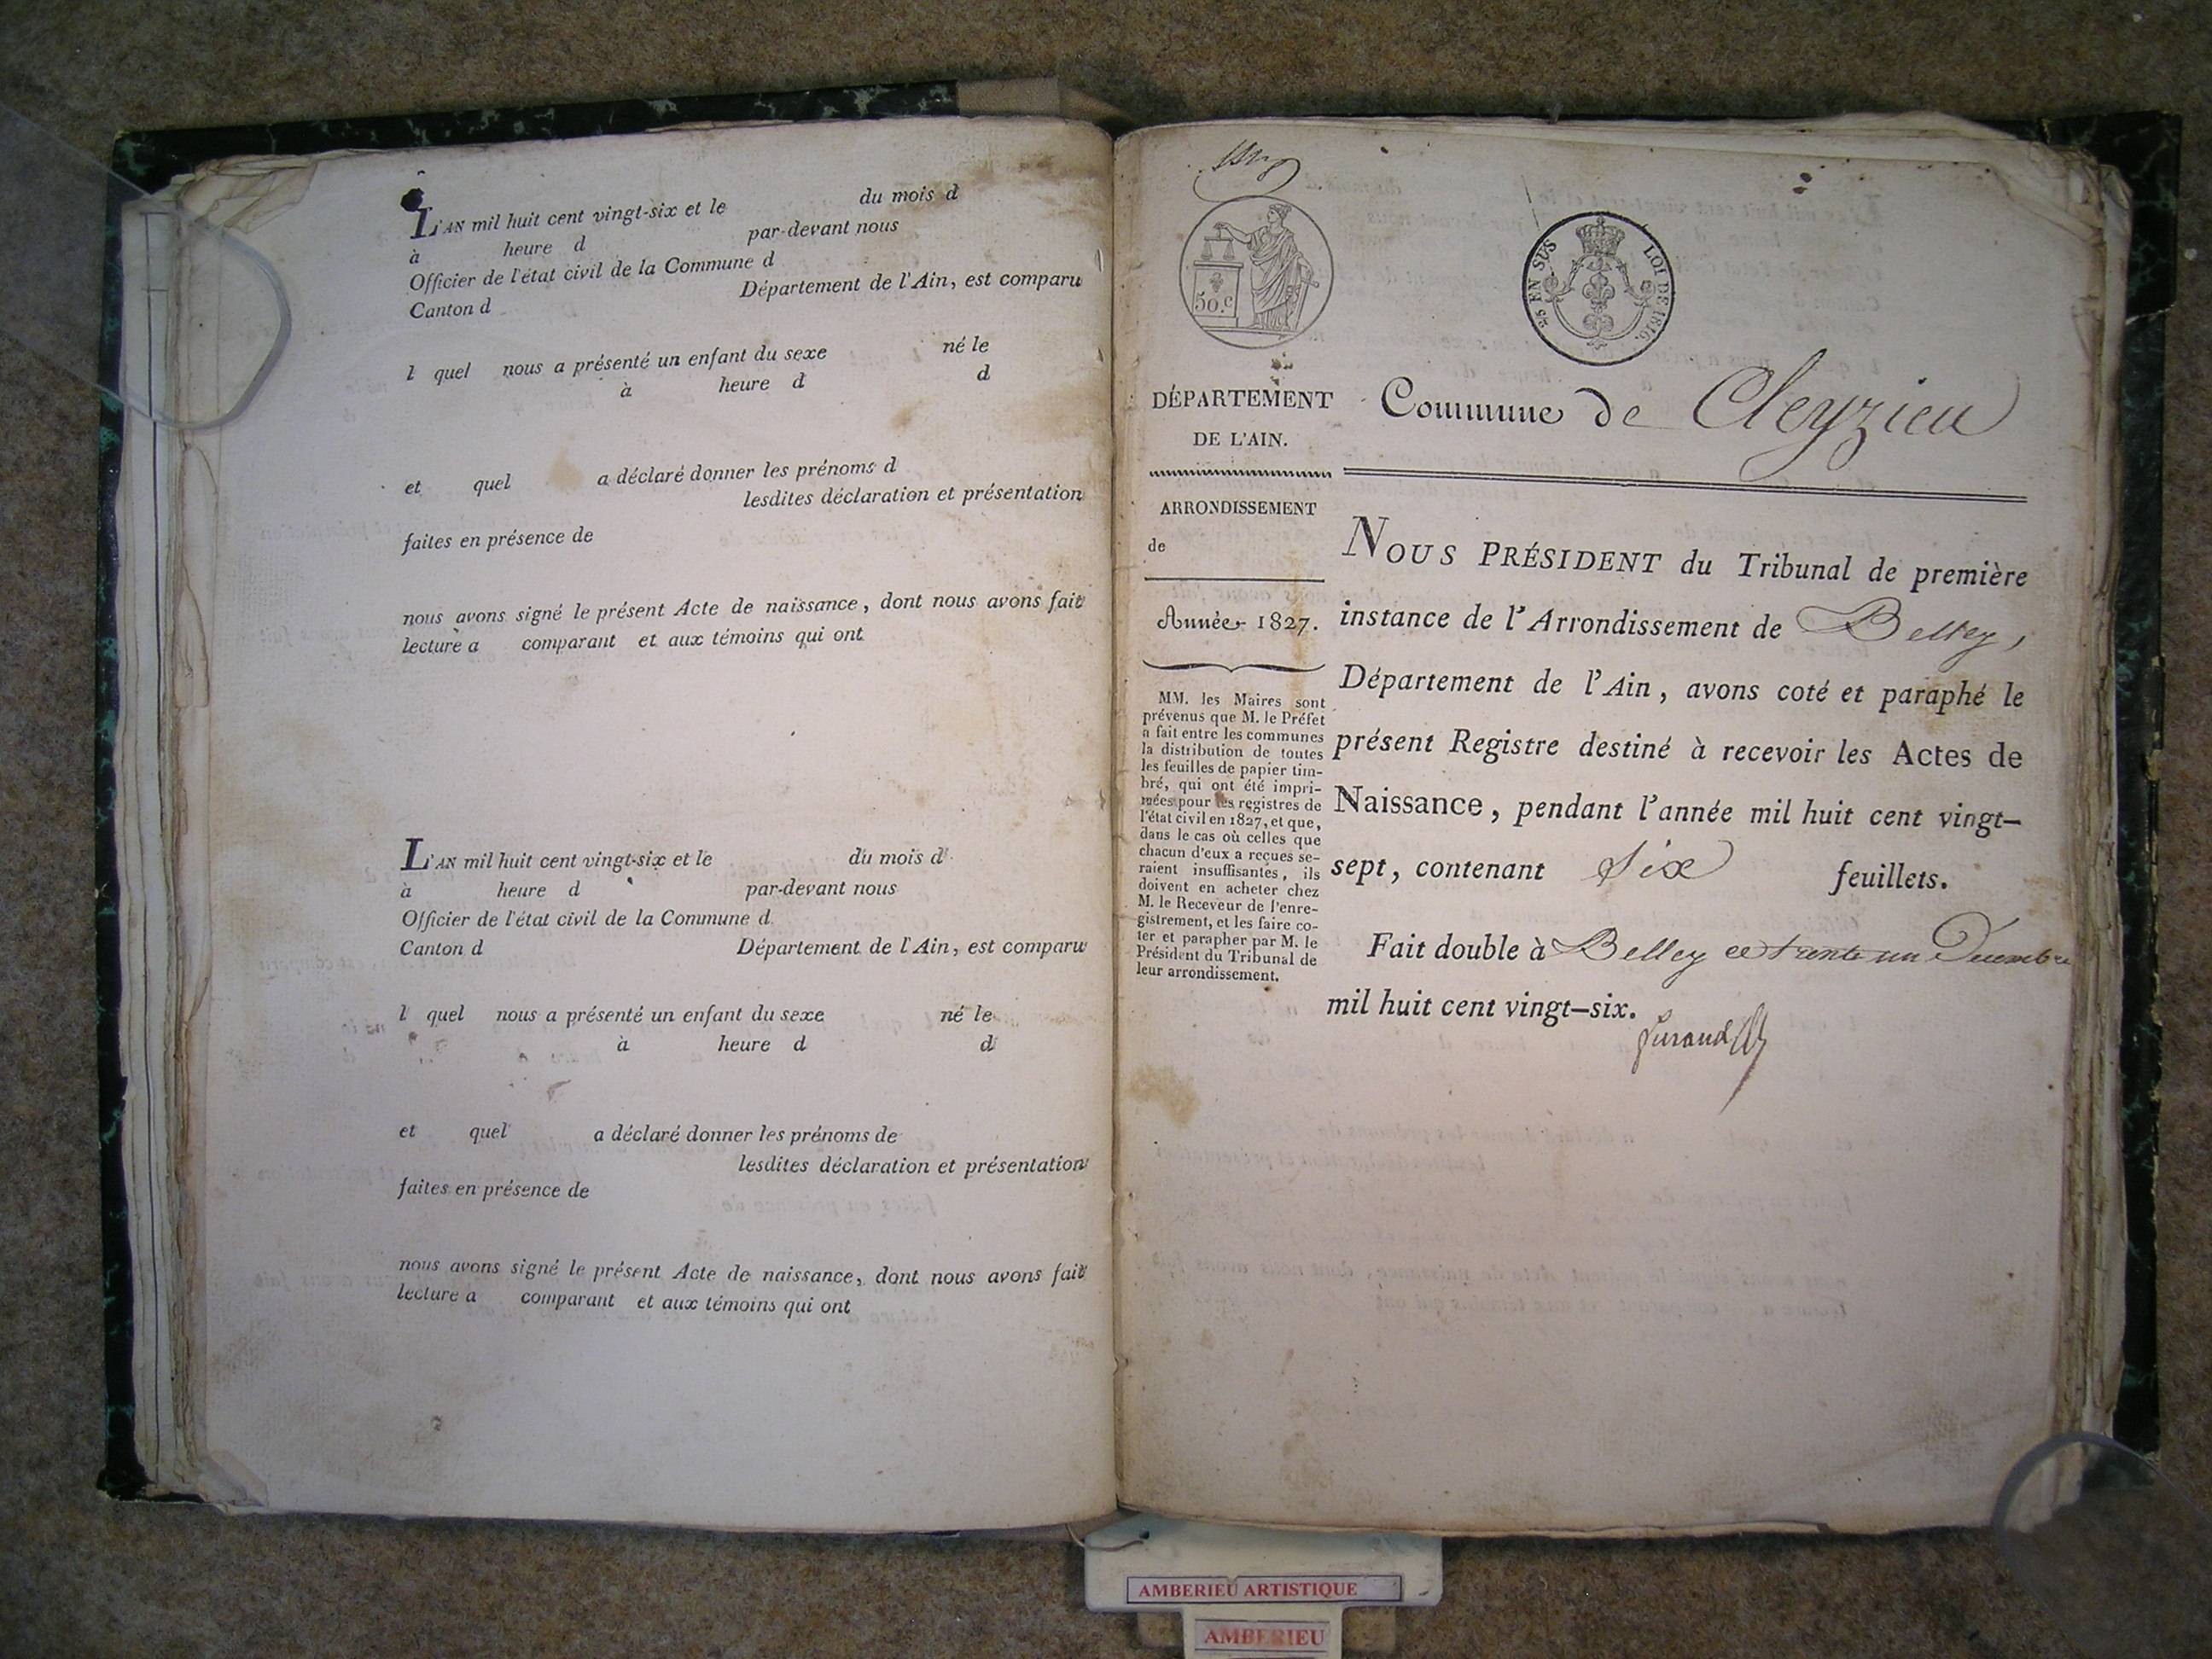 L'AN mil huit cent vingt-six et le du mois d
à heure d par-devant nous
Officier de l'état civil de la Commune d
Canton d Département de l'Ain, est comparu
l quel nous a présenté un enfant du sexe né le
à heure d d
et quel a déclaré donner les prénoms d
lesdites déclaration et présentation
faites en présence de
nous avons signé le présent Acte de naissance, dont nous avons fait
lecture a comparant et aux témoins qui ont
L'AN mil huit cent vingt-six et le du mois d
à heure d par-devant nous
Officier de l'état civil de la Commune d
Canton d Département de l'Ain, est comparu
l quel nous a présenté un enfant du sexe né le
à heure d d
et quel a déclaré donner les prénoms de
lesdites déclaration et présentation
faites en présence de
nous avons signé le présent Acte de naissance, dont nous avons fait
lecture a comparant et aux témoins qui ont
50.c
25 EN SUS LOI DE 1816.
DÉPARTEMENT
DE L'AIN.
ARRONDISSEMENT
de
Année 1827.
MM. les Maires sont
prévenus que M. le Préfet
a fait entre les communes
la distribution de toutes
les feuilles de papier tim-
bré, qui ont été impri-
mées pour les registres de
l'état civil en 1827, et que,
dans le cas où celles que
chacun d'eux a reçues se-
raient insuffisantes, ils
doivent en acheter chez
M. le Receveur de l'enre-
gistrement, et les faire co-
ter et parapher par M. le
Président du Tribunal de
leur arrondissement.
Commune de Cleyzieu
NOUS PRÉSIDENT du Tribunal de première
instance de l'Arrondissement de Belley,
Département de l'Ain, avons coté et paraphé le
présent Registre destiné à recevoir les Actes de
Naissance, pendant l'année mil huit cent vingt-
sept, contenant six feuillets.
Fait double à Belley ce trente un Decembre
mil huit cent vingt-six.
AMBERIEU ARTISTIQUE
AMBERIEU